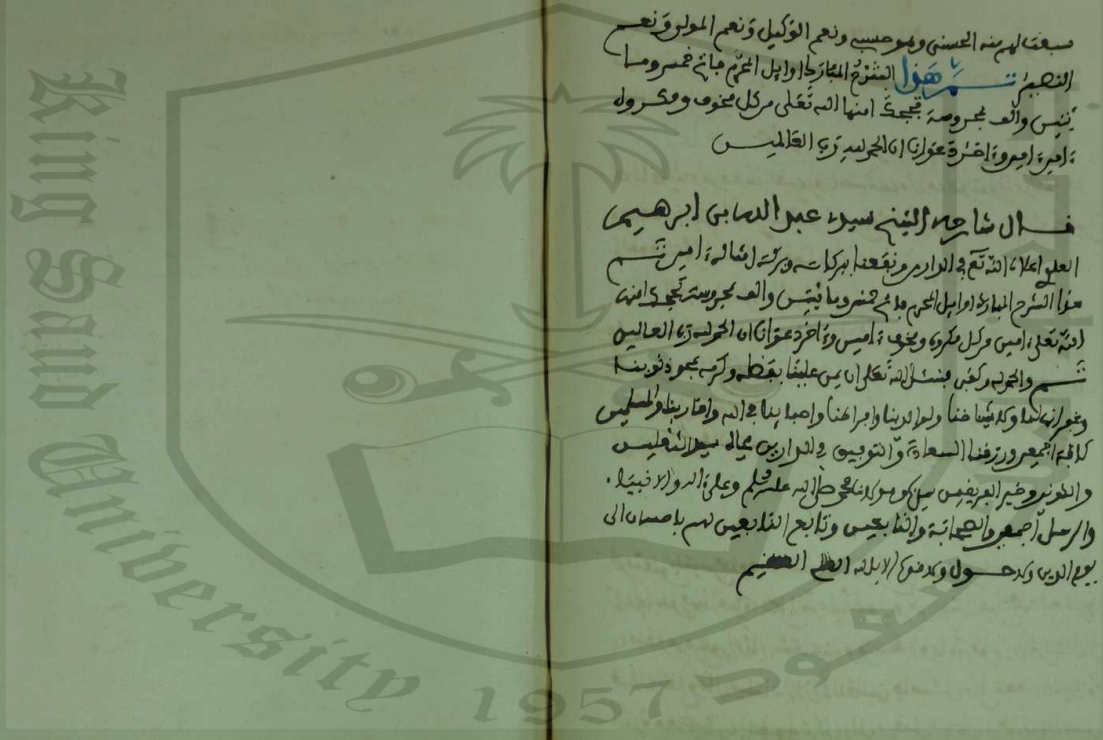 سبقت لهم منه الحسنى وهو حسبي ونعم الوكيل ونعم المولى ونعم
النصير تم هذا الشرح المبارك اوايل المحرم فاتح خمس وما
ئتين والف بمحروسة امنها الله تعلى من كل مخوف ومكروه
ءامين ءامين وءاخر دعوانا ان الحمد لله رب العالمين
قال شارحه الشيخ سيدي عبد الله بن ابرهيم
العلوي الله تع في الدارين ونفعنا ببركاته وبركة امثاله ءامين تم
هذا الشرح المبارك اوايل المحرم فاتح خمس ومائتين والف بمحروسة امنها
الله تعلى ءامين من كل مكروه ومخوف ءامين وءاخر دعوانا ان الحمد لله رب العالمين
تم والحمد لله وكفى فنسئل الله تعلى ان يمن علينا بفضله وكرمه بمحو ذنوبنا
وغفرانها لنا ولاشياخنا ولوالدينا واحبابنا في الله واقاربنا والمسلمين
كافة اجمعين ورزقنا السعادة والتوفيق في الدارين بجاه سيد الثقلين
والكونين وخير الفريقين محمد صلى الله عليه وسلم وعلى ءاله والانبياء
والرسل اجمعين والصحابة والتابعين وتابع التابعين لهم باحسان الى
يوم الدين ولا حول ولا قوة الا بالله العلي العظيم
King Saud University
1957